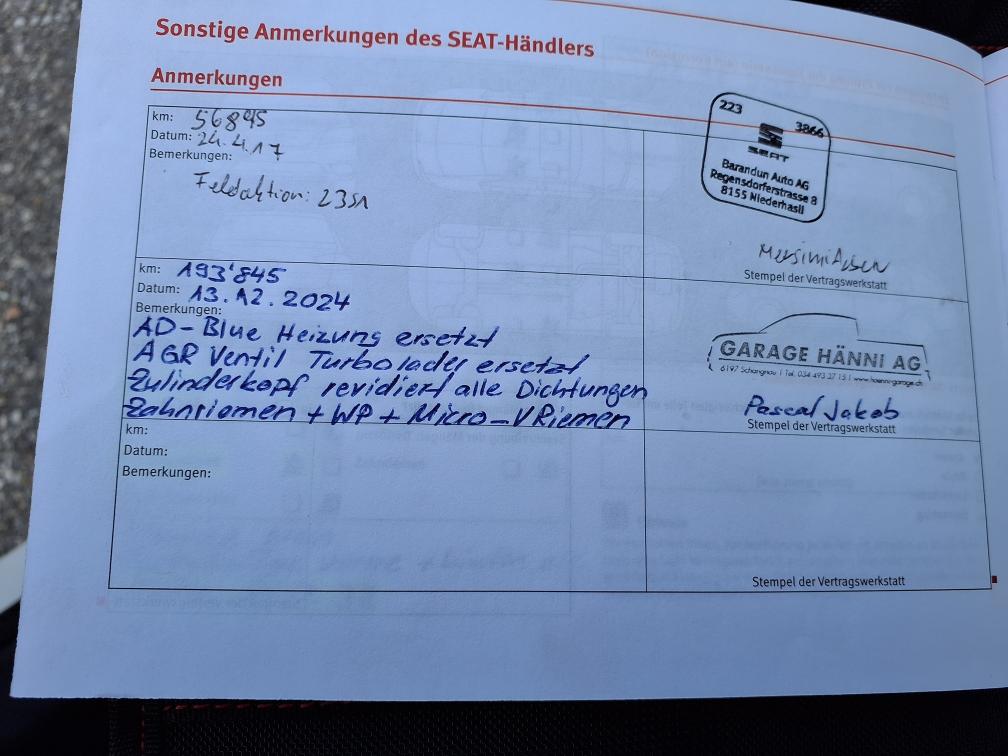 Sonstige Anmerkungen des SEAT-Händlers
Anmerkungen
km: 56845
Datum: 24.4.17
Bemerkungen:
Feldaktion: 23S1
223 3866
SEAT
Barandun Auto AG
Regensdorferstrasse 8
8155 Niederhasli
Stempel der Vertragswerkstatt
km: 193'845
Datum: 13.12.2024
Bemerkungen:
AD-Blue Heizung ersetzt
AGR Ventil Turbolader ersetzt
Zulinderkopf revidiert alle Dichtungen
Zahnriomen + WP + Micro-V Riemen
GARAGE HÄNNI AG
6197 Schangnau | Tel. 034 493 37 15 | www.haenni-garage.ch
Pascal Jakob
Stempel der Vertragswerkstatt
km:
Datum:
Bemerkungen:
Stempel der Vertragswerkstatt